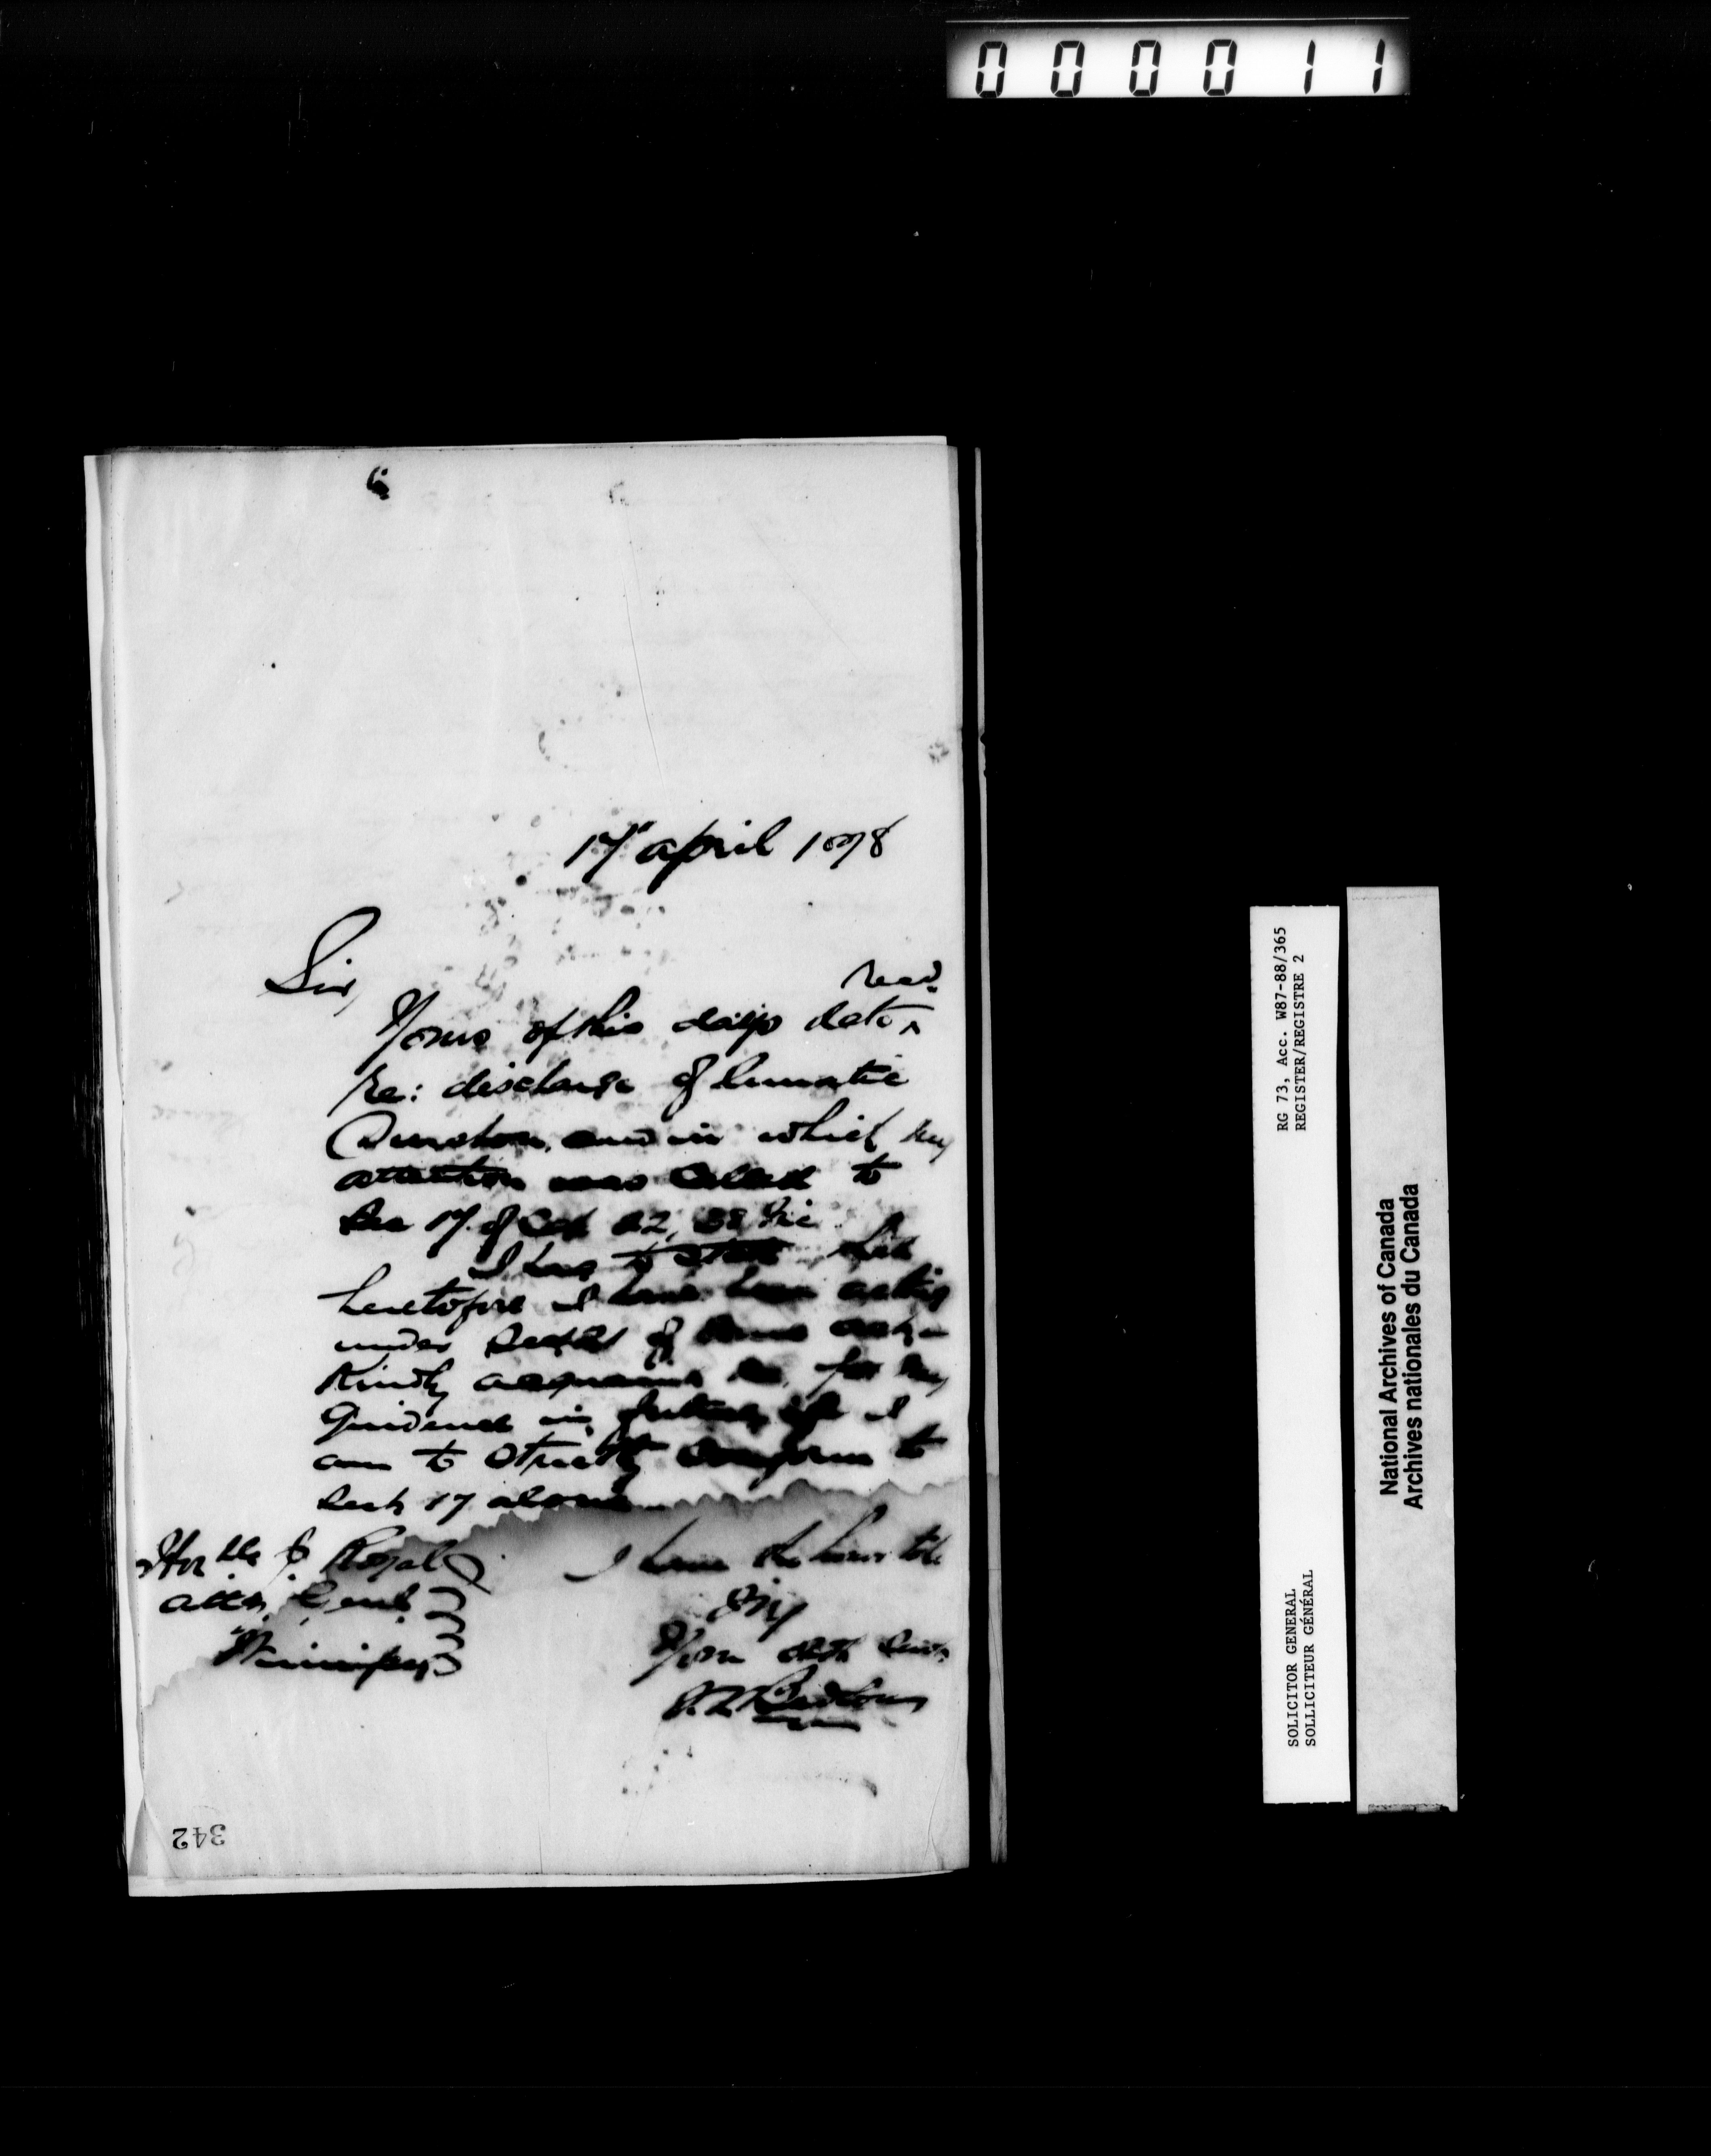 000011
17" April 1878
Sir,
recd.
Yours of this days date
Re: discharge of lunatic
and in which my
attention was called to
Sec 17 of Cap 22, 38 Vic
I beg to state that
heretofore I have been acting
under of same act
Kindly acquaint me, for my
Guidence in future, if I
am to strictly conform to
Sect 17 alone
Honble J Royal
I have the honor to be
Atty Genl
Sir
Winnipeg
Your obdt Servt
S. L. Bedson
342
RG 73, Acc. W87-88/365
REGISTER/REGISTRE 2
SOLICITOR GENERAL
SOLLICITEUR GÉNÉRAL
National Archives of Canada
Archives nationales du Canada